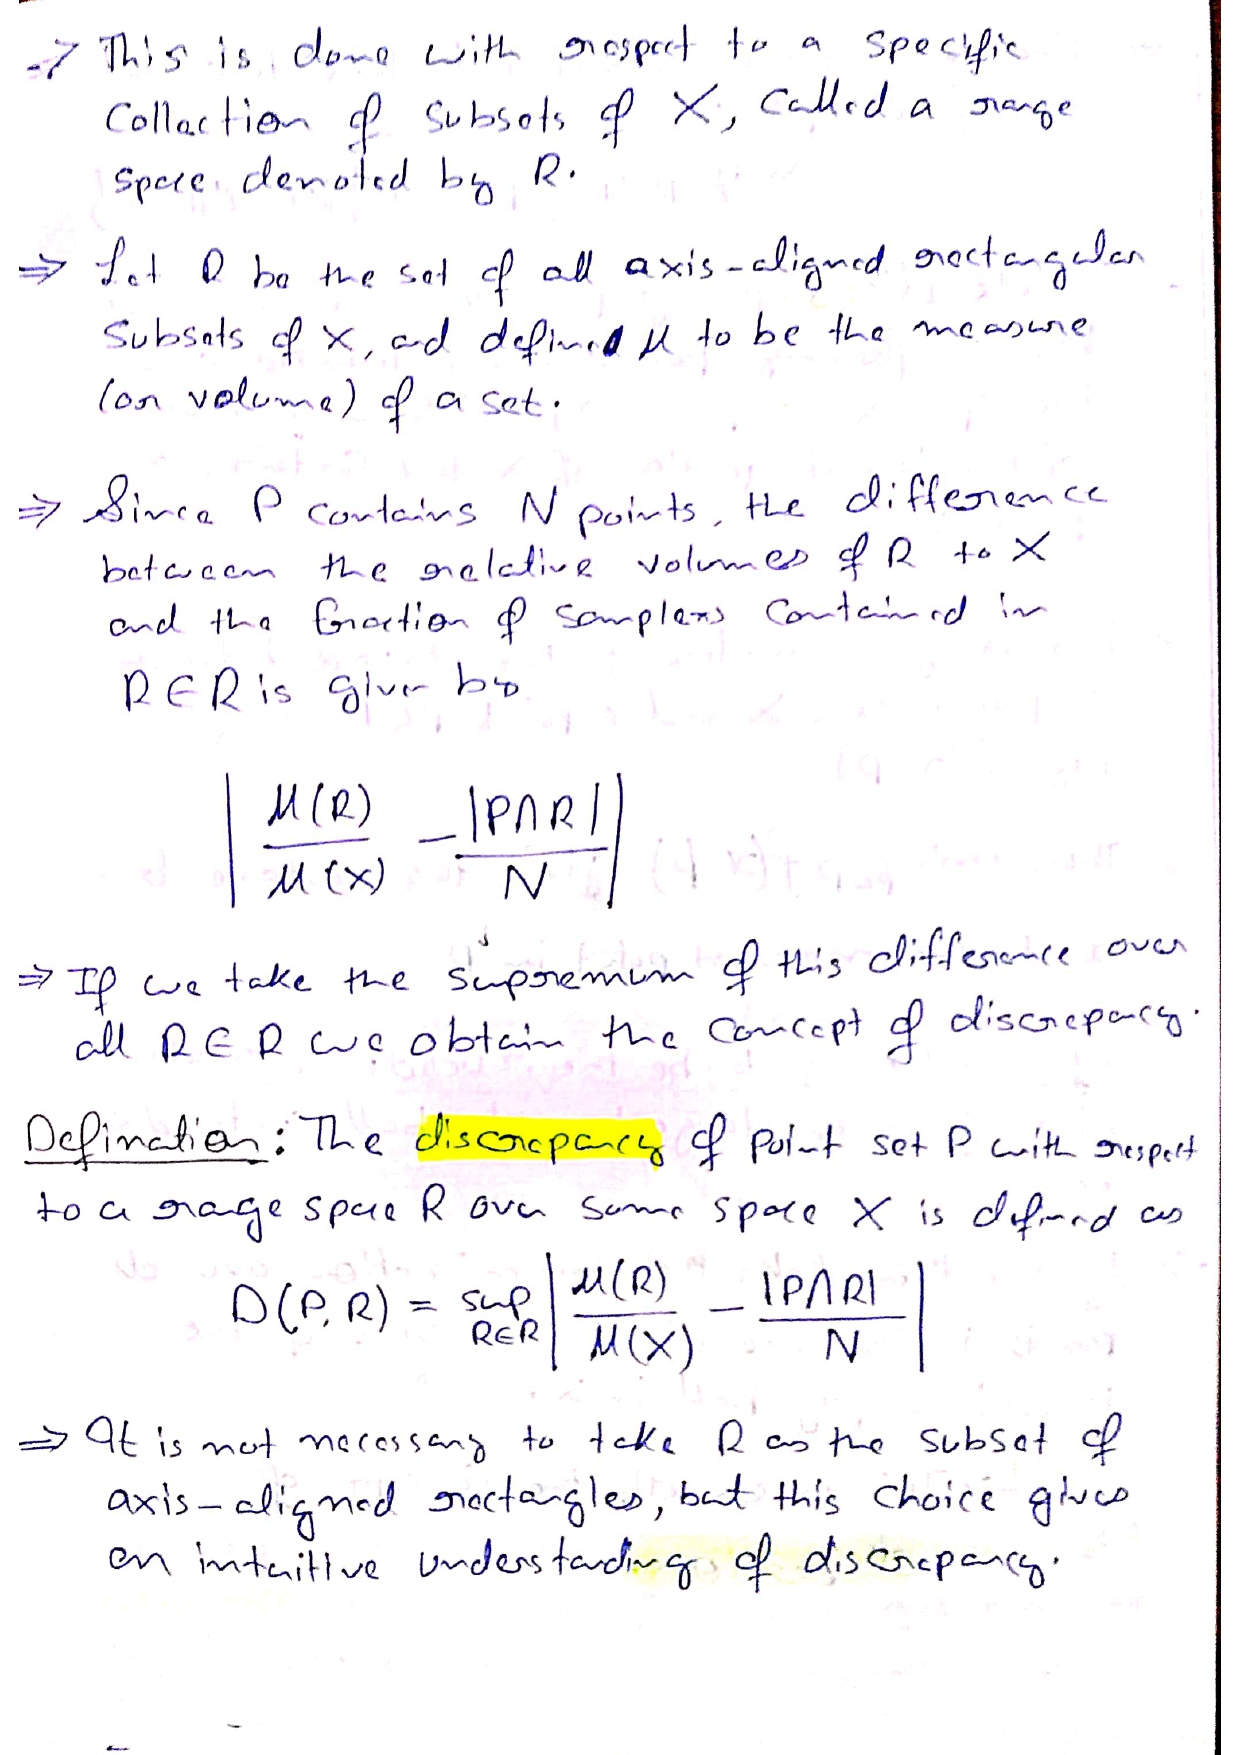 -> This is done with respect to a specific
Collection of subsets of X, called a range
space denoted by R.
⇒ Let R be the set of all axis-aligned rectangular
Subsets of X, and defined μ to be the measure
(or volume) of a set.
⇒ Since P contains N points, the difference
between the relative volumes of R to X
and the fraction of samplers contained in
R ∈ R is given by
| μ(R) / μ(X) - |P∩R| / N |
⇒ If we take the supremum of this difference over
all R ∈ R we obtain the concept of discrepancy.
Defination: The discrepancy of point set P with respect
to a range space R over some space X is defined as
D(P, R) = sup R∈R | μ(R) / μ(X) - |P∩R| / N |
⇒ It is not necessary to take R as the subset of
axis-aligned rectangles, but this choice gives
an intuitive understanding of discrepancy.